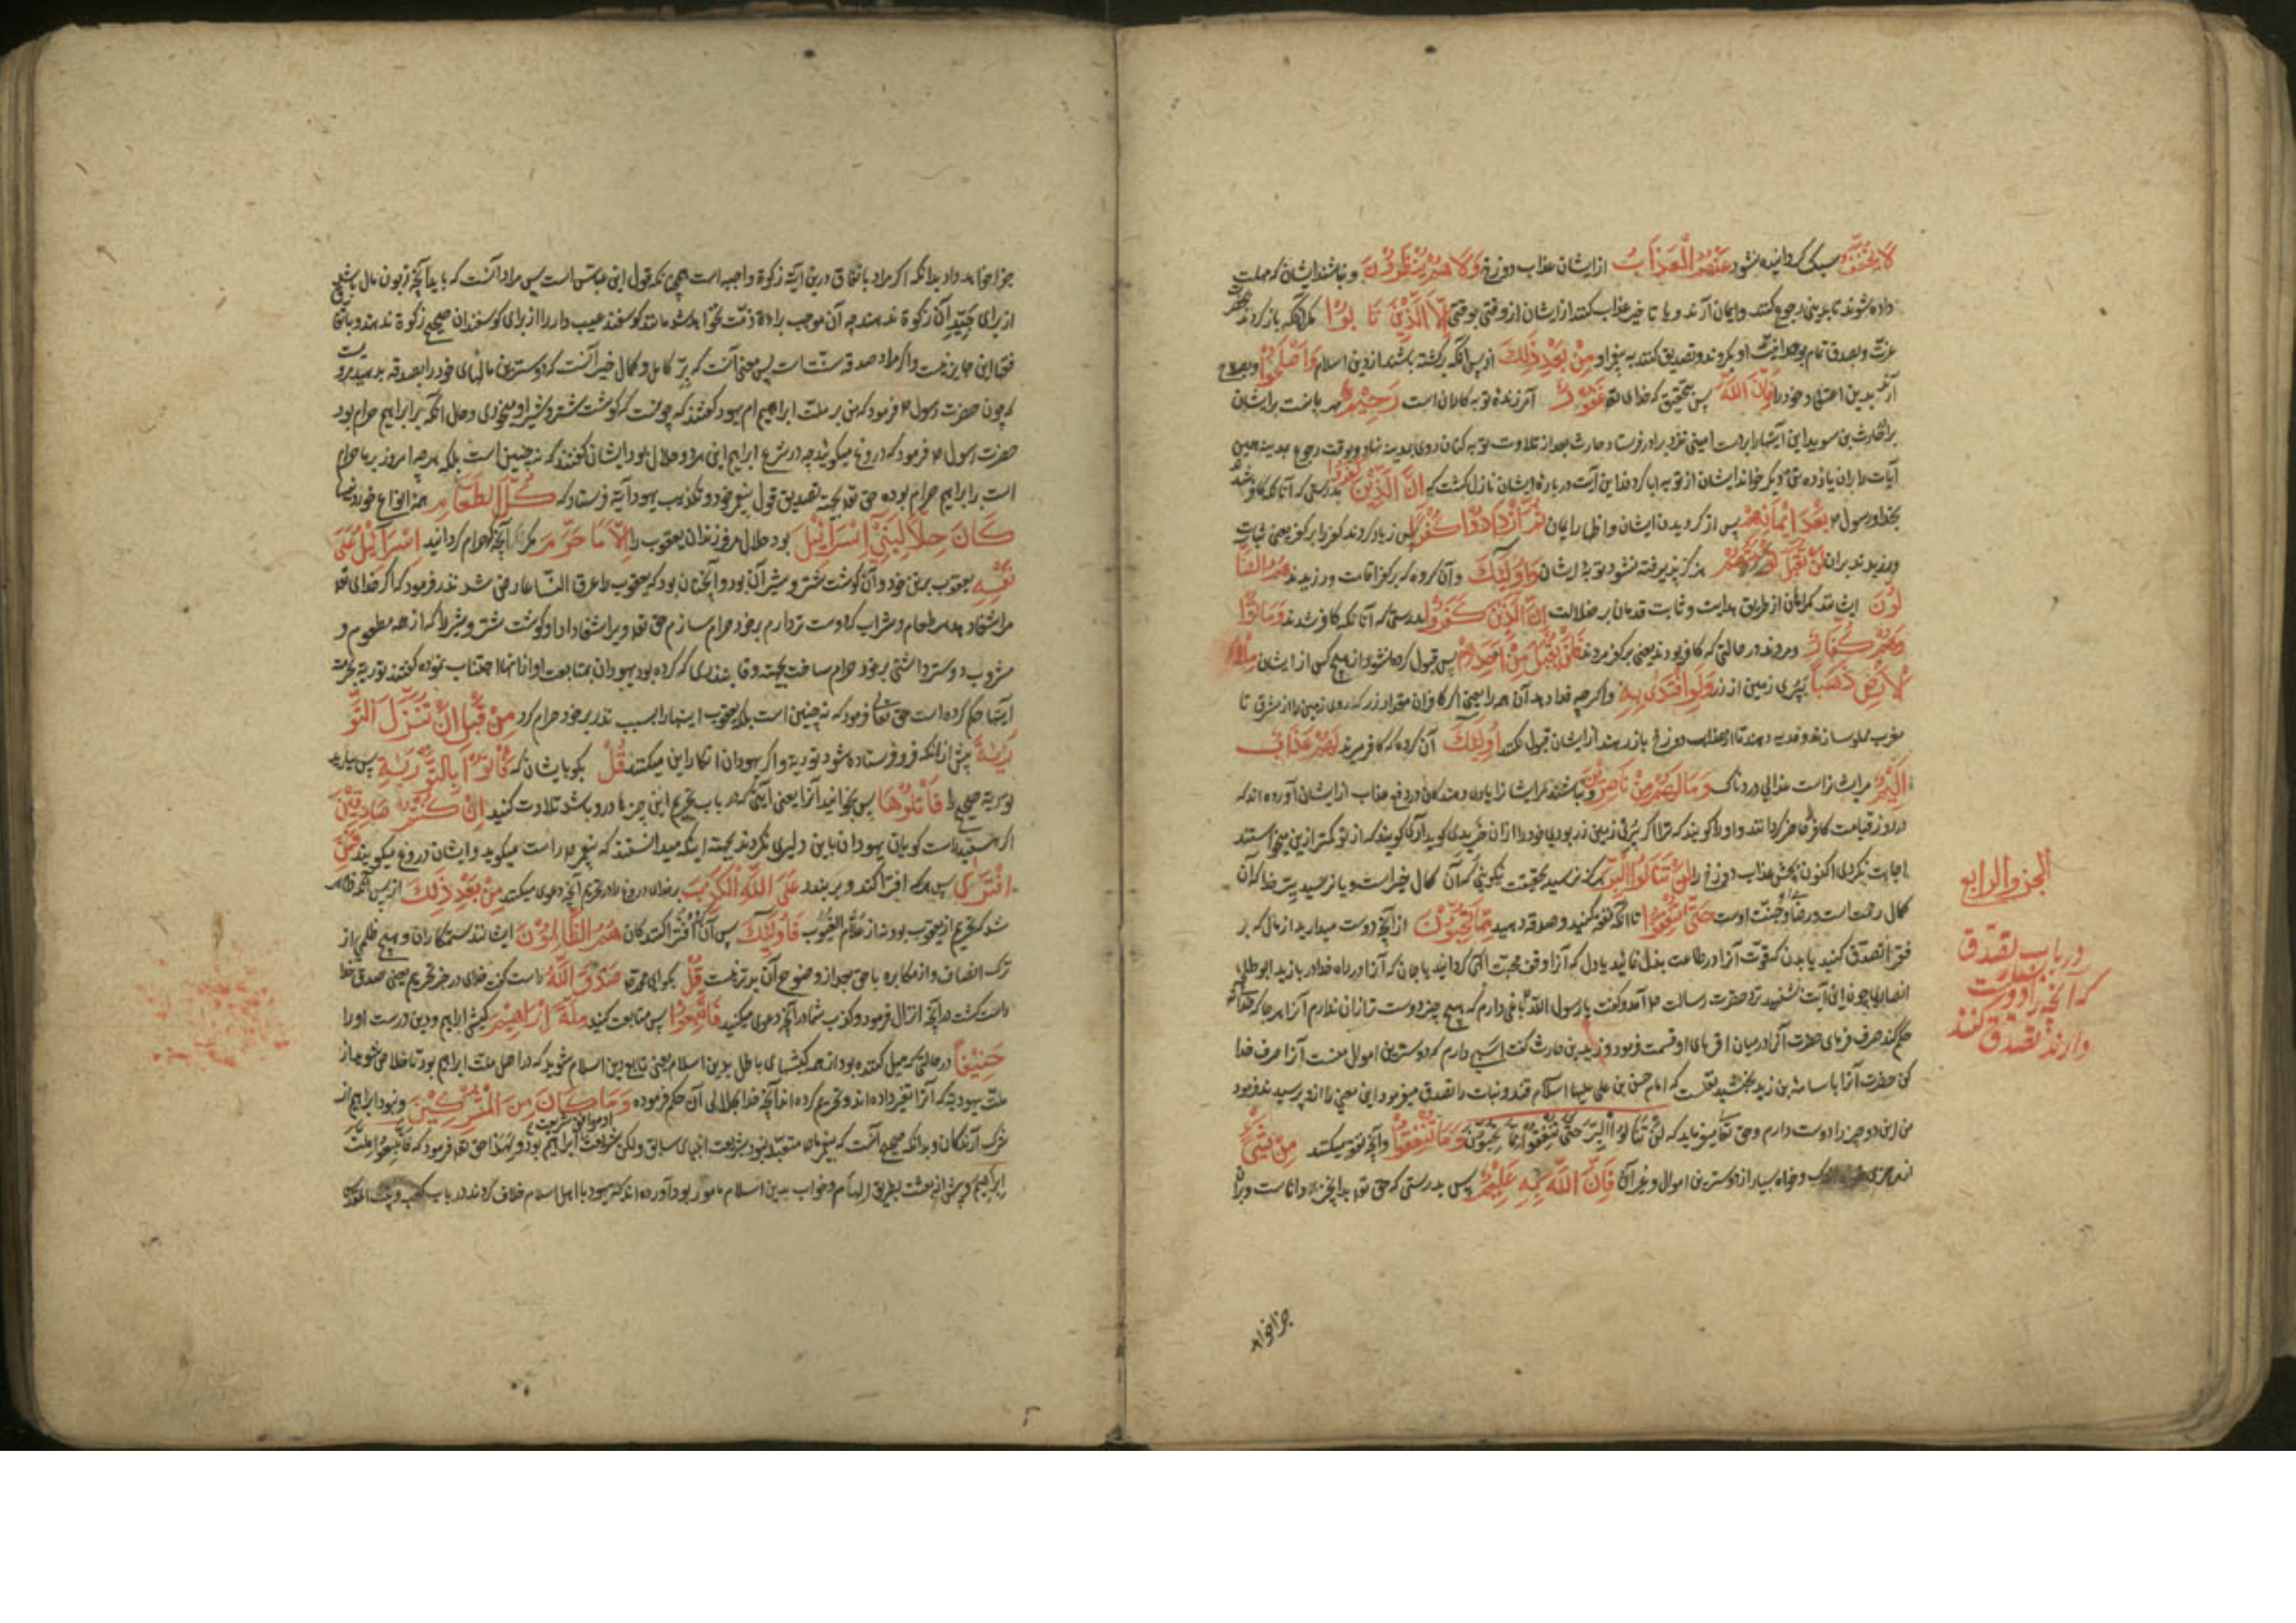 لَا يُخَفَّفُ سبک کردانیده نشود عَنْهُمُ الْعَذَابُ از ایشان عذاب دوزخ وَلَا هُمْ يُنْظَرُونَ و نباشند ایشان که مهلت
داده شوند تا بدنیی رجوع کنند و ایمان آرند و یا تاخیر عذاب کنند از ایشان از وقتی بوقتی اِلَّا الَّذِيْنَ تَابُوْا مکر آنکه باز کردند
عزت و بصدق تمام بوحدانیت او بکروند و تصدیق کنند به پیغمبر او مِنْ بَعْدِ ذٰلِكَ از پس آنکه برکشته باشند از دین اسلام وَاَصْلَحُوْا و بصلاح
آرند بدین اعتقاد خود را فَاِنَّ اللّٰهَ پس بتحقیق که خدای تعه غَفُوْرٌ آمرزنده توبه کاران است رَحِيْمٌ مهربانست بر ایشان
برادر حارث بن سوید این آیتها را بدست امینی نزد برادر فرستاد و حارث بعد از تلاوت توبه کنان روی بمدینه نهاد و بوقت رجوع بمدینه همین
آیات را بران یازده تن دیکر خواند ایشان از توبه ابا کردند این آیت در باره ایشان نازل کشت که اِنَّ الَّذِيْنَ كَفَرُوْا بدرستی که آنانکه کافر شدند
بخدا و رسول بَعْدَ اِيْمَانِهِمْ پس از کرویدن ایشان و اظهار ایمان ثُمَّ ازْدَادُوْا كُفْرًا پس زیاد کردند کفر را بر کفر یعنی ثبات
ورزیدند بران لَنْ تُقْبَلَ تَوْبَتُهُمْ هرکز پذیرفته نشود توبه ایشان وَاُولٰئِكَ و آن کروه که بر کفر اقامت ورزیدند هُمُ الضَّا
لُّوْنَ ایشانند کمراهان از طریق هدایت و ثابت قدمان بر ضلالت اِنَّ الَّذِيْنَ كَفَرُوْا بدرستی که آنانکه کافر شدند وَمَاتُوْا
وَهُمْ كُفَّارٌ و مردند در حالتی که کافر بودند یعنی بر کفر مردند فَلَنْ يُقْبَلَ مِنْ اَحَدِهِمْ پس قبول کرده نشود از هیچ کس از ایشان مِلْءُ
الْاَرْضِ ذَهَبًا بپُری زمین از زر وَلَوِ افْتَدٰى بِهٖ و اکر چه فدا دهد آن همه را یعنی اکر کافران مقدار زر که روی زمین را از مشرق تا
مغرب مملو سازند و فدیه دهند تا از عذاب دوزخ باز رهند از ایشان قبول نکنند اُولٰئِكَ آن کروه که کافر مردند لَهُمْ عَذَابٌ
اَلِيْمٌ مر ایشانراست عذابی دردناک وَمَا لَهُمْ مِنْ نَاصِرِيْنَ و نباشند مر ایشانرا یاری دهندکان در دفع عذاب از ایشان آورده اند که
در روز قیامت کافر را حاضر کردانند و او را کویند که ترا اکر پُری زمین زر بودی خود را ازان خریدی کوید آری کویند که از تو کمتر ازین میخواستند
اجابت نکردی اکنون بچش عذاب دوزخ را لَنْ تَنَالُوا الْبِرَّ هرکز نرسید بحقیقت نیکویی که آن کمال خیر است و یا نرسید ببِرّ خدا که آن
کمال رحمت است و رضا و جنت اوست حَتّٰى تُنْفِقُوْا تا آنکه نفقه کنید و صدقه دهید مِمَّا تُحِبُّوْنَ از آنچه دوست میدارید از مال که بر
فقرا تصدق کنید یا بدن که قوت آنرا در طاعت بذل نمائید یا دل که آنرا وقف محبت الهی کردانید یا جان که آنرا در راه خدا در بازید ابو طلحه
انصاری چون این آیت بشنید نزد حضرت رسالت آمد و کفت یا رسول الله باغی دارم که هیچ چیز دوست تر ازان ندارم آنرا هر جا که خدا
حکم کند صرف فرمای حضرت آنرا در میان اقربای او قسمت فرمود و زید بن حارث کفت اسپی دارم که دوسترین اموال منست آنرا صرف خدا
کن حضرت آنرا باسامه بن زید بخشید نقلست که امام حسن بن علی علیهما السلام قند و نبات را تصدق میفرمود این معنی را ازو پرسیدند فرمود
من این دو چیز را دوست دارم و حق تعالی میفرماید که لَنْ تَنَالُوا الْبِرَّ حَتّٰى تُنْفِقُوْا مِمَّا تُحِبُّوْنَ وَمَا تُنْفِقُوْا و آنچه نفقه میکنید مِنْ شَیْءٍ
از چیزی خواه اندک و خواه بسیار از دوسترین اموال و غیر آن فَاِنَّ اللّٰهَ بِهٖ عَلِيْمٌ پس بدرستی که حق تعه بدان چیز داناست و بران
الجزو الرابع
در باب تصدق
که آنچه را دوست
دارند تصدق کنند
جزا خواهد
جزا خواهد داد بدانکه اکر مراد بانفاق درین آیة زکوة واجبه است همچنانکه قول ابن عباس است پس مراد آنست که باید آنچه زبون مال باشد
از برای جَیِّدِ آن زکوة ندهند چه آن موجب برائة ذمت نخواهد شد مانند کوسفند عیب دار را از برای کوسفندان صحیح زکوة ندهند و باتفاق
فقها این جایز نیست و اکر مراد صدقه سنت است پس معنی آنست که بِرّ کامل و کمال خیر آنست که دوسترین مالهای خود را بصدقه بدهید
که چون حضرت رسول فرمود که من بر ملت ابراهیم ام یهود کفتند که چونست که کوشت شتر و شیر او میخوری و حال آنکه بر ابراهیم حرام بود
حضرت رسول فرمود که دروغ میکوئید چه در شرع ابراهیم این هر دو حلال بود ایشان کفتند که نه چنین است بلکه هر چه امروز بر ما حرام
است بر ابراهیم حرام بوده حق تعه بجهة تصدیق قول پیغمبر خود و تکذیب یهود آیة فرستاد که كُلُّ الطَّعَامِ همه انواع خوردنیها
كَانَ حِلًّا لِبَنِيْ اِسْرَآئِيْلَ بود حلال مر فرزندان یعقوب را اِلَّا مَا حَرَّمَ مکر آنچه حرام کردانید اِسْرَآئِيْلُ عَلٰى
نَفْسِهٖ یعقوب بر نفس خود و آن کوشت شتر و شیر آن بود و آنچنان بود که یعقوب را عرق النسا عارض شد نذر فرمود که اکر خدای تعه
مرا شفا دهد هر طعام و شراب که دوست تر دارم بر خود حرام سازم حق تعه ویرا شفا داد او کوشت شتر و شیر را که از همه مطعوم و
مشروب دوستر داشتی بر خود حرام ساخت بجهة وفا بنذری که کرده بود یهودان بمتابعت او از انها اجتناب نموده کفتند توریة بحرمت
اینها حکم کرده است حق تعالی فرمود که نه چنین است بلکه یعقوب اینها را بسبب نذر بر خود حرام کرد مِنْ قَبْلِ اَنْ تُنَزَّلَ التَّوْ
رٰيةُ پیش از آنکه فرو فرستاده شود توریة و اکر یهودان انکار این میکنند قُلْ بکو بایشان که فَأْتُوْا بِالتَّوْرٰيةِ پس بیارید
توریة صحیح را فَاتْلُوْهَا پس بخوانید آنرا یعنی آیتی که در باب تحریم این چیزها درو باشد تلاوت کنید اِنْ كُنْتُمْ صَادِقِيْنَ
اکر هستید راست کویان یهودان باین دلیری نکردند بجهة اینکه میدانستند که پیغمبر راست میکوید و ایشان دروغ میکویند فَمَنِ
افْتَرٰى پس هر که افترا کند و بر بندد عَلَى اللّٰهِ الْكَذِبَ بر خدای دروغ را در تحریم آنچه دعوی میکنند مِنْ بَعْدِ ذٰلِكَ از پس آنکه ظاهر
شد که تحریم از یعقوب بود نه از علام الغیوب فَاُولٰئِكَ پس آن افتراکنندکان هُمُ الظَّالِمُوْنَ ایشانند ستمکاران و هیچ ظلمی از
ترک انصاف و از مکابره با حق بعد از وضوح آن بدتر نیست قُلْ بکو ای محمد صَدَقَ اللّٰهُ راست کفت خدای در خبر تحریم یعنی صدق خدا
دانسته کشت در آنچه انزال فرمود و کذب شما در آنچه دعوی میکنید فَاتَّبِعُوْا پس متابعت کنید مِلَّةَ اِبْرَاهِيْمَ کیش ابراهیم و دین درست او را
حَنِيْفًا در حالتی که میل کننده بود از همه کیشهای باطل بدین اسلام یعنی تابع دین اسلام شوید که در اصل ملت ابراهیم بود تا خلاص شوید از
ملت یهودیه که آنرا تغییر داده اند و تحریم کرده اند آنچه خدا بحلالی آن حکم فرموده وَمَا كَانَ مِنَ الْمُشْرِكِيْنَ و نبود ابراهیم از
شرک آرندکان و بدانکه صحیح آنست که پیغمبر ما متعبد نبود بشریعت انبیای سابق ولکن شریعت او موافق شریعت ابراهیم بود و لهذا حق تعه فرمود که فَاتَّبِعُوْا مِلَّةَ
اِبْرَاهِيْمَ و پیش از بعثت بطریق الهام و خواب بدین اسلام مامور بود آورده اند که یهود با اهل اسلام خلاف کردند در باب کعبه و بیت المقدس